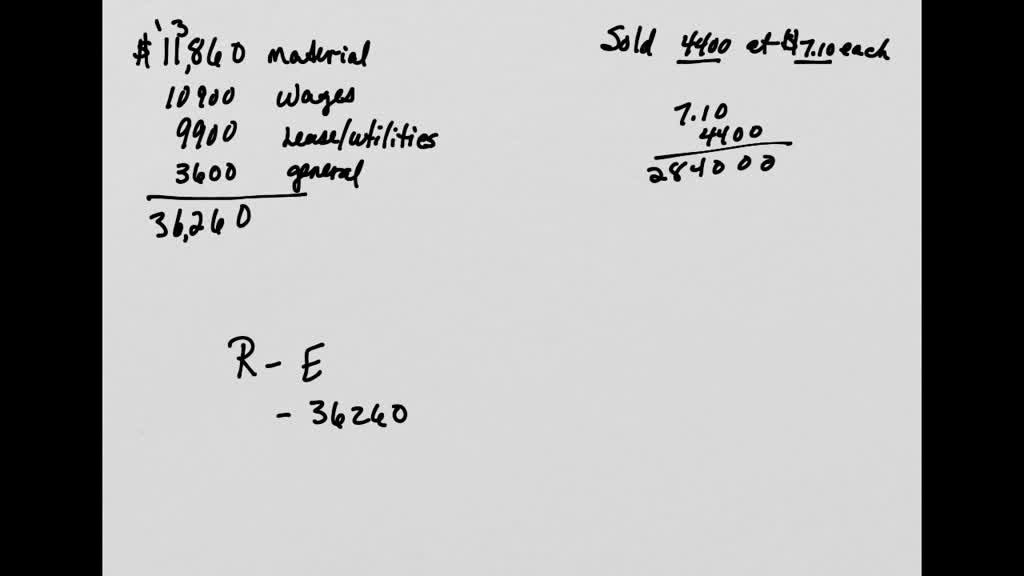 1 3
$11,860 material
10900 wages
9900 Lease/utilities
3600 general
36,260
Sold 4400 at $7.10 each
7.10
4400
284000
R - E
- 36260